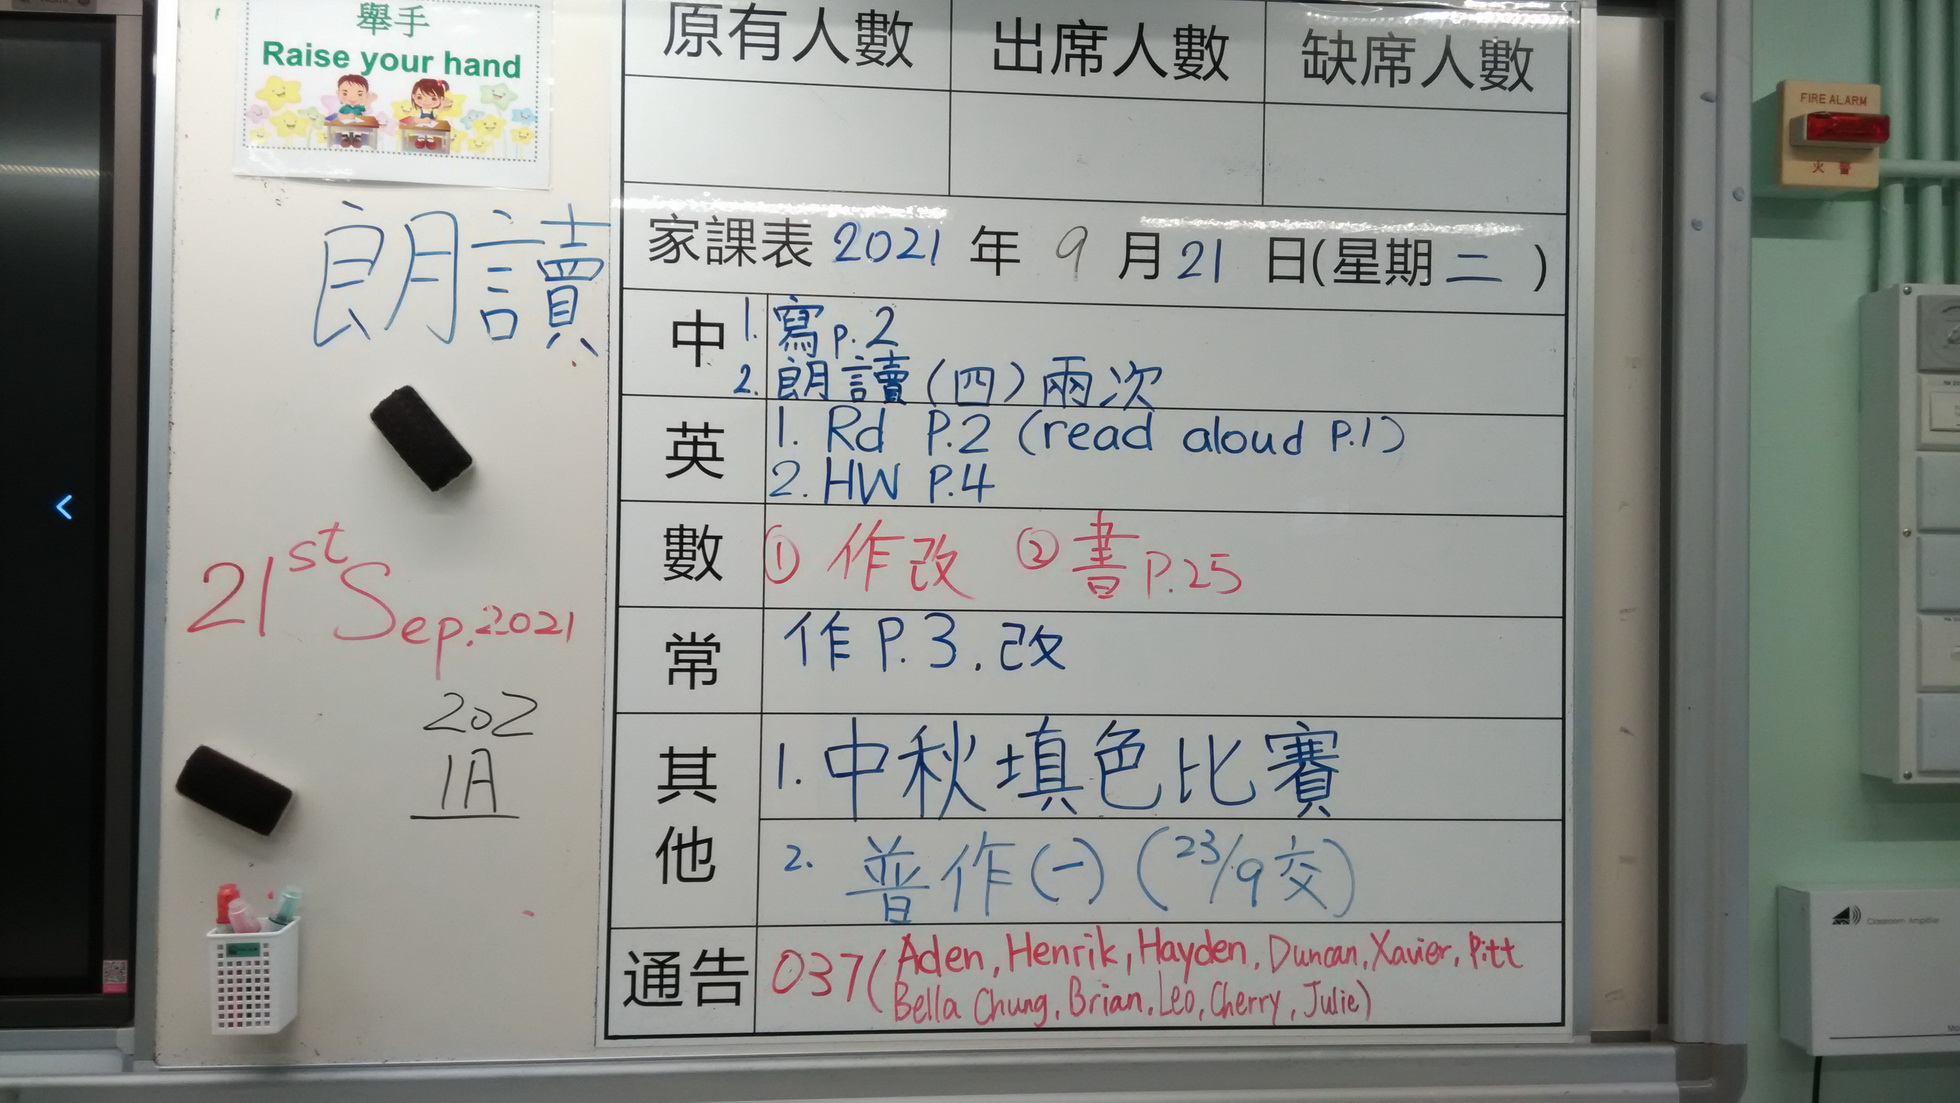 舉手
Raise your hand
原有人數 出席人數 缺席人數
朗讀
家課表 2021 年 9 月 21 日(星期二)
中 1. 寫 p.2
2. 朗讀(四)兩次
英 1. Rd P.2 (read aloud P.1)
2. HW P.4
數 ① 作改 ② 書 P.25
常 作 P.3.改
其他 1. 中秋填色比賽
2. 普作(一) (23/9交)
通告 037 (Aden, Henrik, Hayden, Duncan, Xavier, Pitt
Bella Chung, Brian, Leo, Cherry, Julie)
21st Sep. 2021
202
1月
FIRE ALARM
火警
Classroom Amplifier